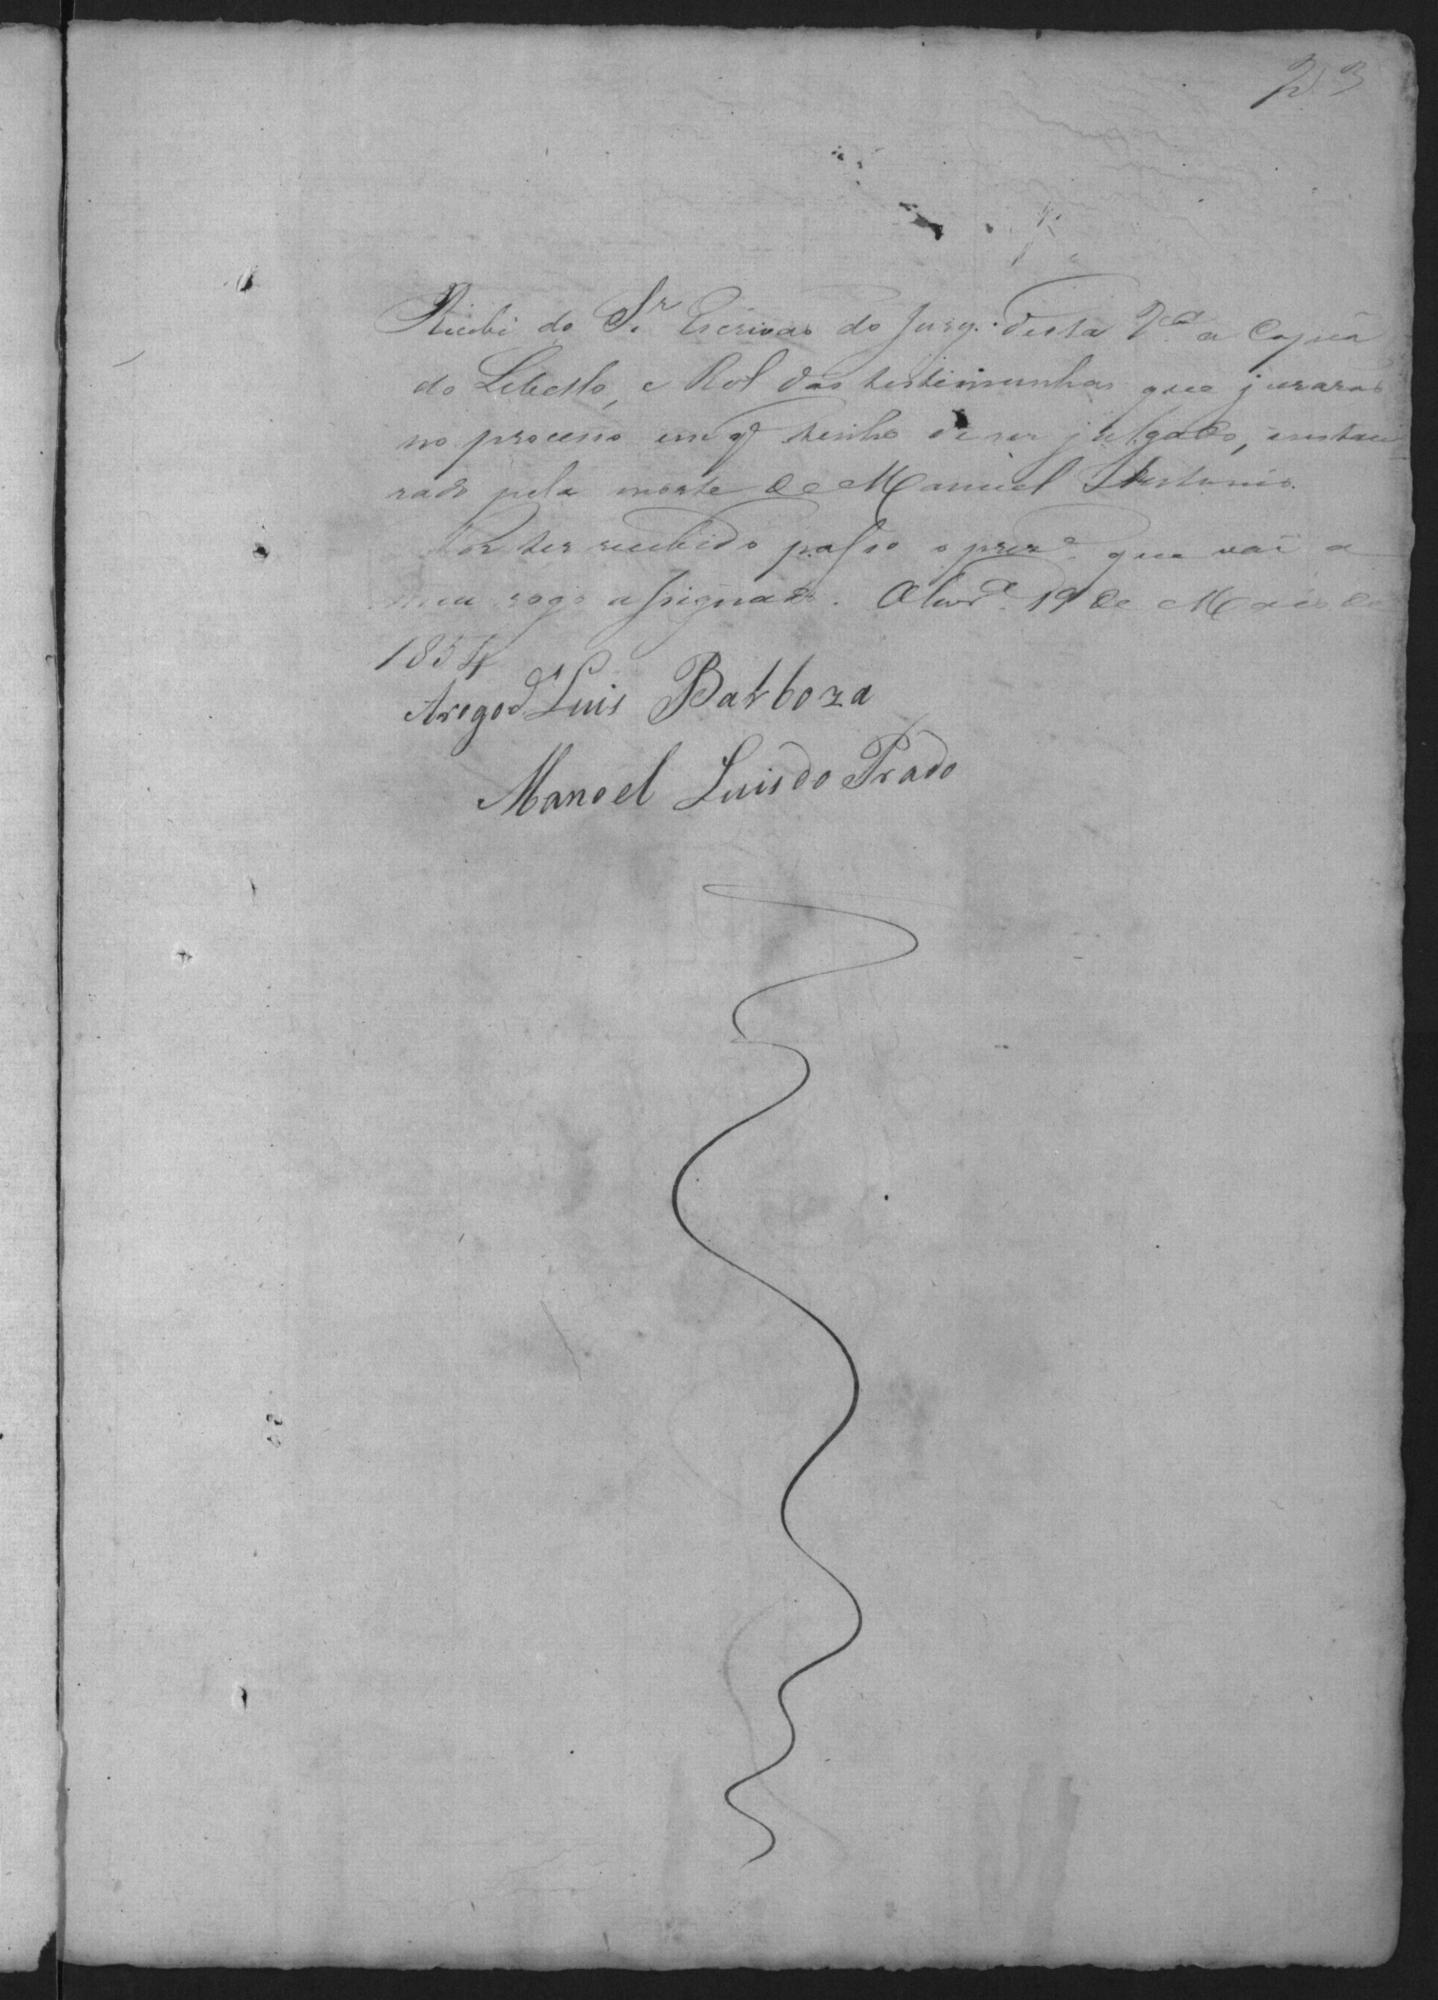 23
Recebi do Sr. Escrivão do Jury desta Va. a Copia
do Libello, e Rol das testimunhas que jurarão
no processo em q tenho de ser julgado, instau
rado pela morte de Manuel Antonio.
Por ter recebido passo o preze. que vai a
meu rogo assignado. 19 de Maio de
1854
Arogo de Luis Barboza
Manoel Luis do Prado